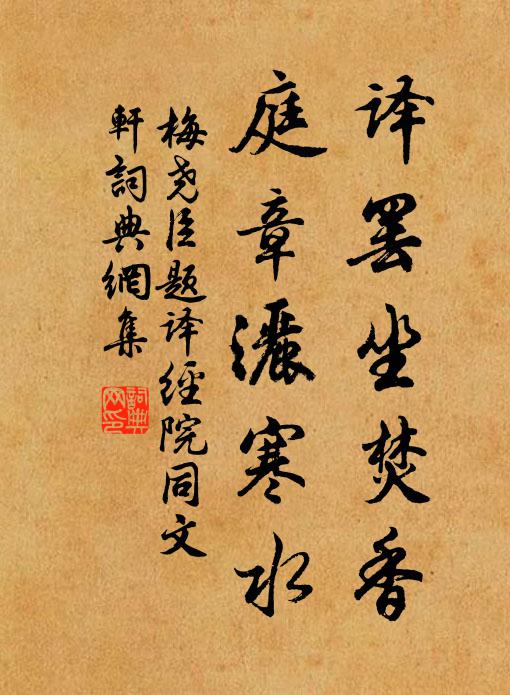 译罢坐焚香
庭章灑寒水
梅尧臣题译經院同文
軒詞典網集
詞典网印